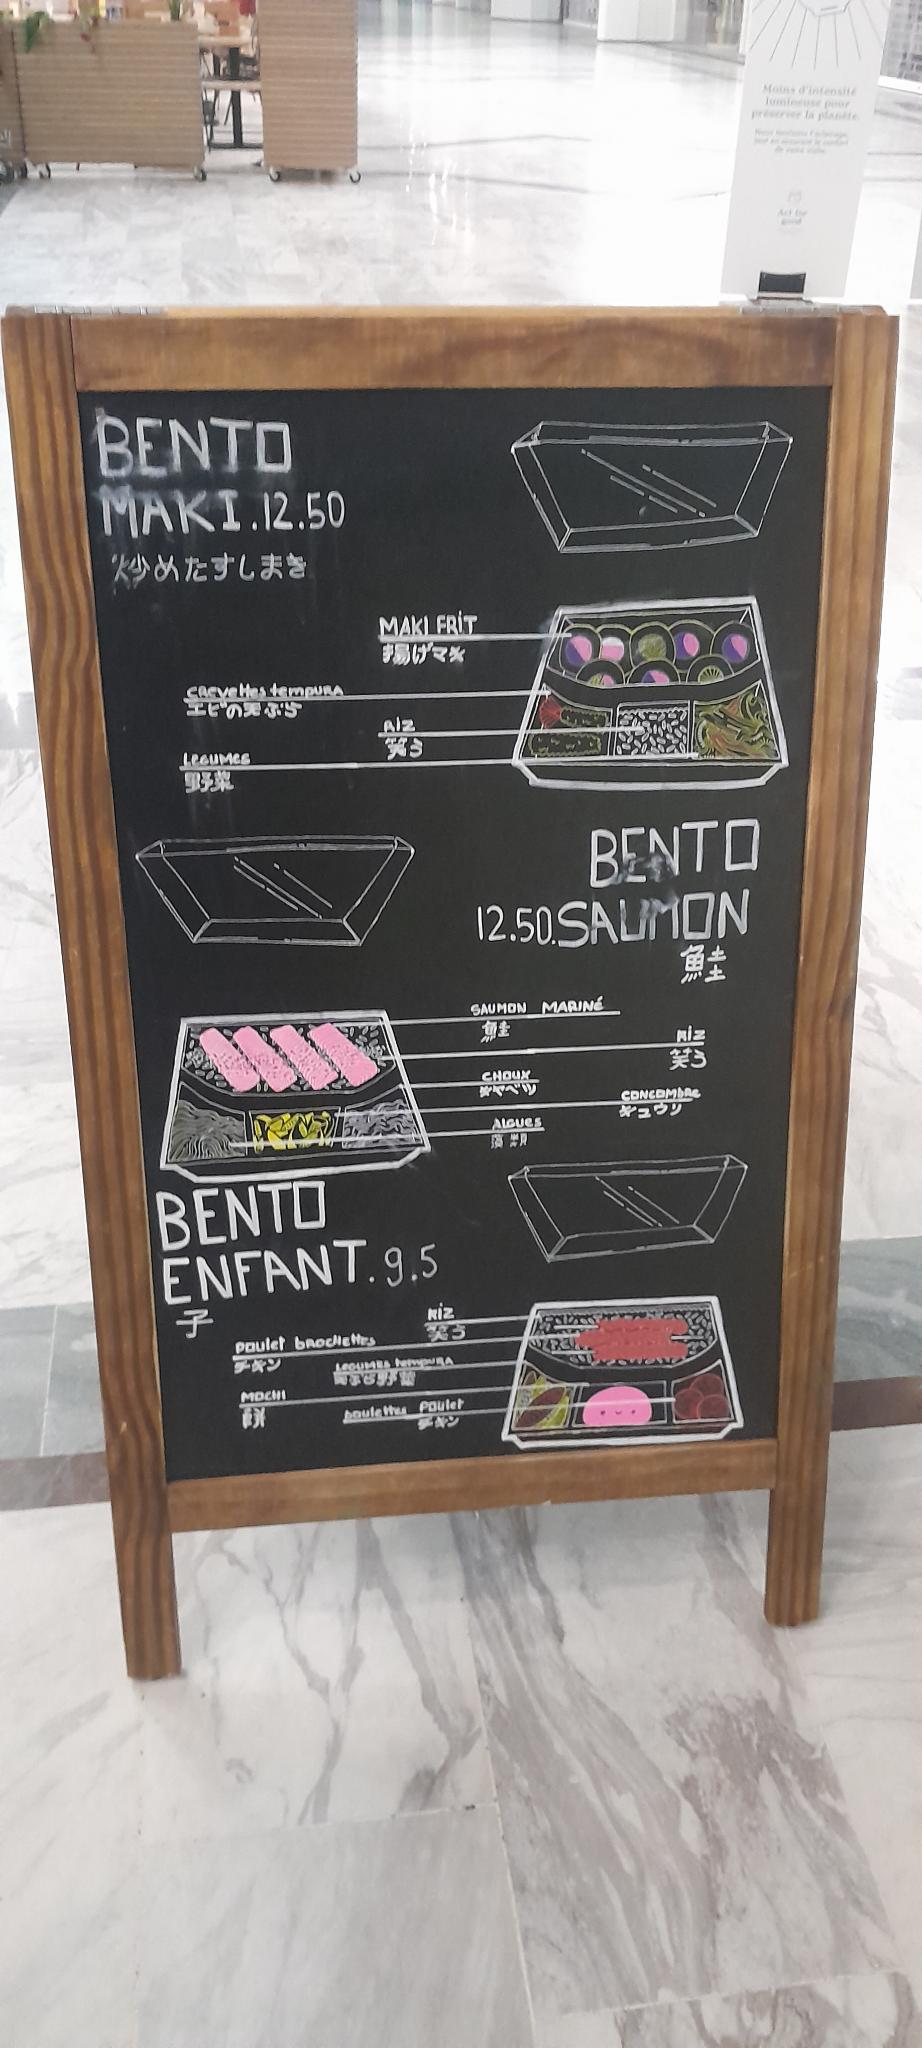 Moins d'intensité
lumineuse pour
préserver la planète.
Act for
good
BENTO
MAKI.12.50
炒めたすしまき
MAKI FRIT
揚げマキ
crevettes tempura
エビの天ぷら
RIZ
笑う
LEGUMES
野菜
BENTO
12.50.SAUMON
鮭
SAUMON MARINÉ
鮭
RIZ
笑う
CHOUX
キャベツ
CONCOMBRE
キュウリ
ALGUES
藻類
BENTO
ENFANT.9.5
子
RIZ
笑う
Poulet brochettes
チキン
LEGUMES tempura
天ぷら野菜
MOCHI
餅
boulettes Poulet
チキン